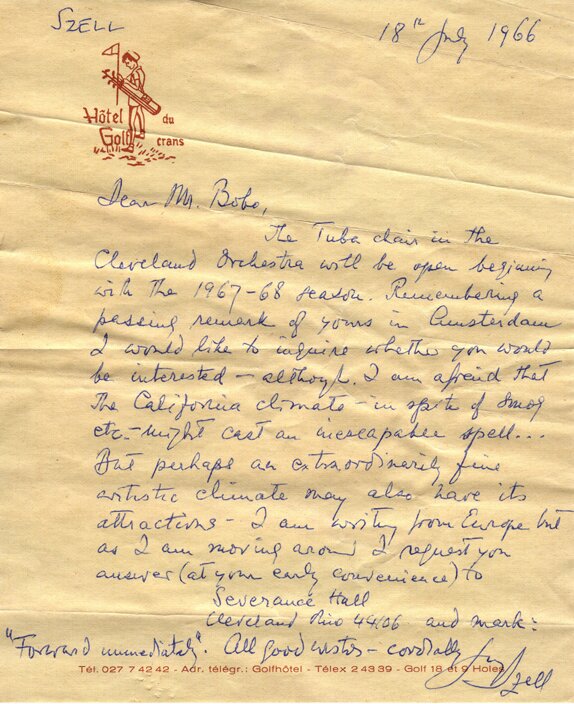 SZELL
18th July 1966
Hôtel du
Golf crans
Dear Mr. Bobo,
The Tuba chair in the
Cleveland Orchestra will be open beginning
with the 1967-68 season. Remembering a
passing remark of yours in Amsterdam
I would like to inquire whether you would
be interested – although I am afraid that
the California climate – in spite of smog
etc – might cast an inescapable spell...
But perhaps an extraordinarily fine
artistic climate may also have its
attractions – I am writing from Europe but
as I am moving around I request you
answer (at your early convenience) to
Severance Hall
Cleveland Ohio 44106 and mark:
"Forward immediately". All good wishes – cordially
Szell
Tél. 027 7 42 42 - Adr. télégr.: Golfhôtel - Télex 2 43 39 - Golf 18 et 9 Holes